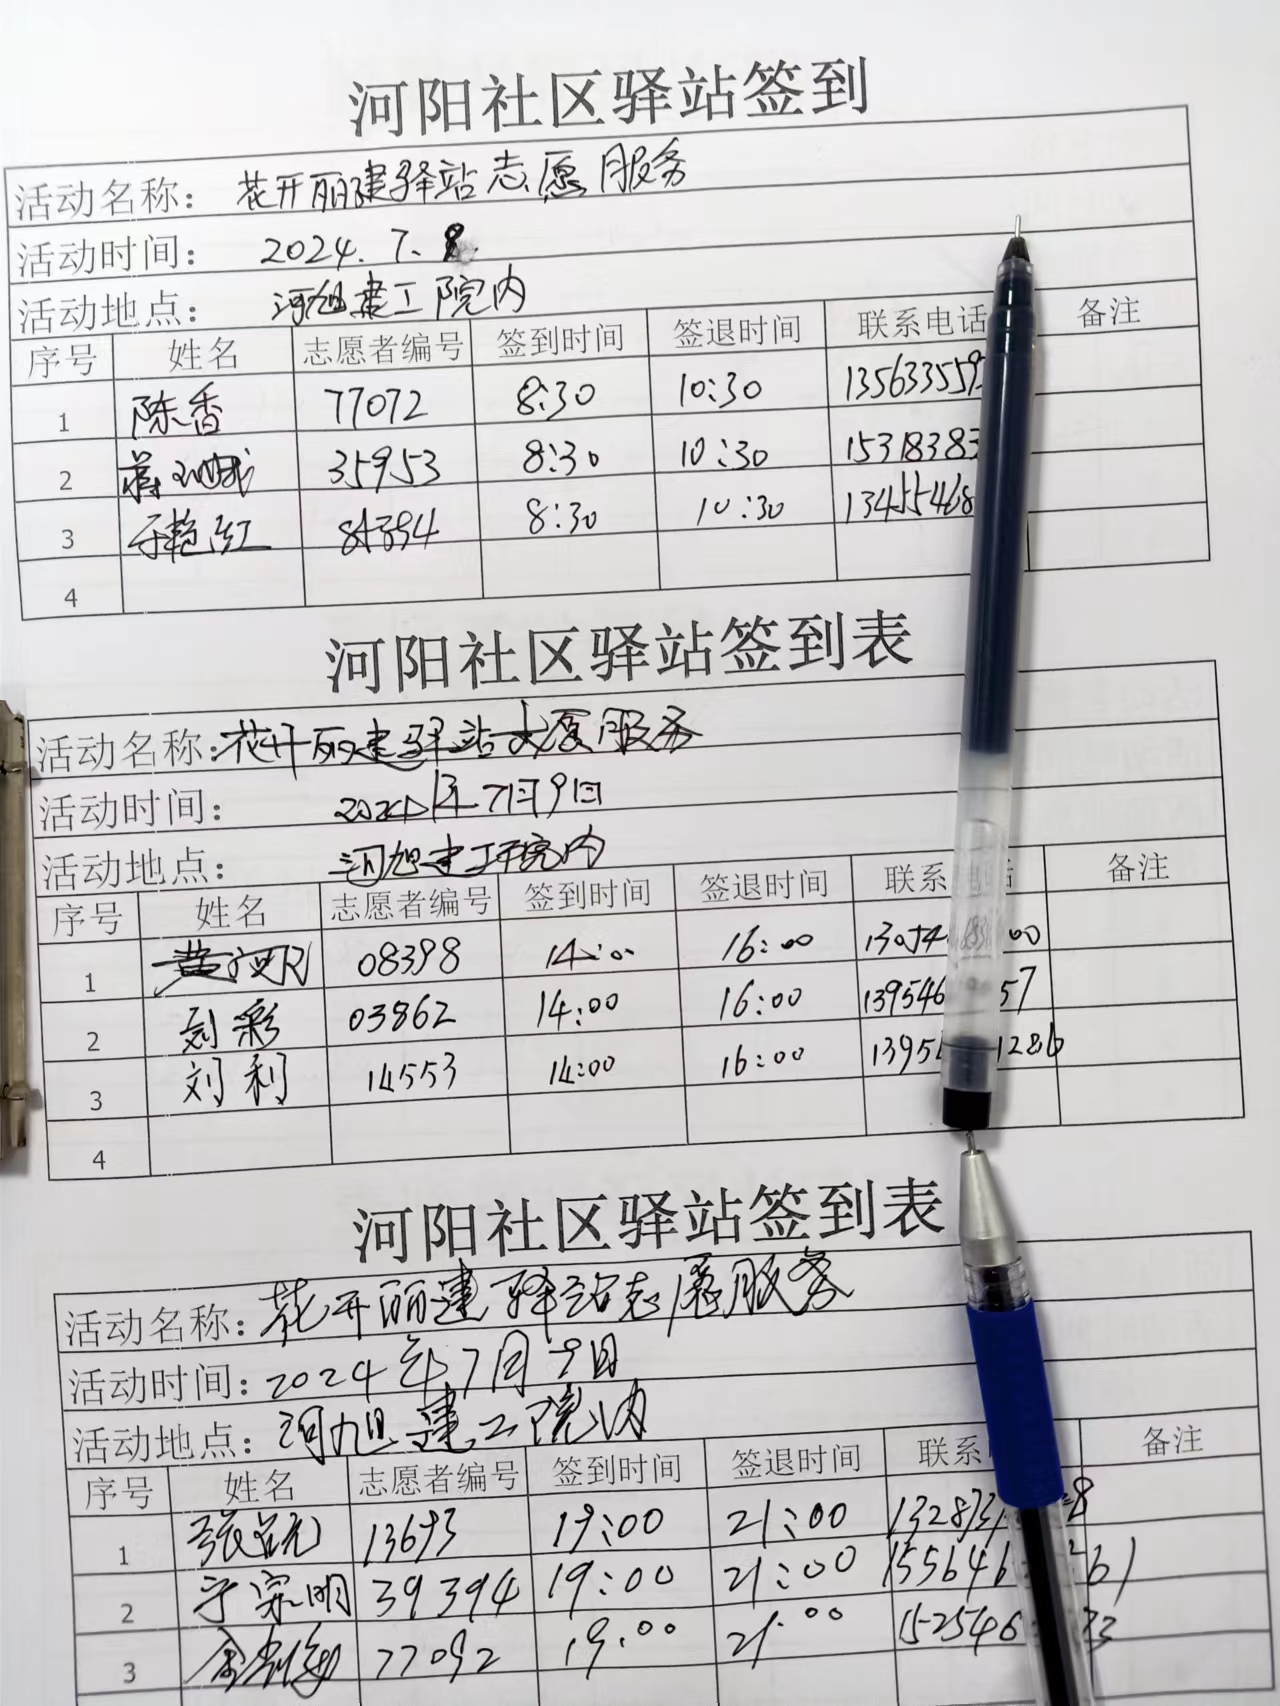 河阳社区驿站签到
活动名称：花开丽建驿站志愿服务
活动时间：2024.7.8.
活动地点：河旭建工院内
序号 姓名 志愿者编号 签到时间 签退时间 联系电话 备注
1 陈香 77072 8:30 10:30 135633559
2 35953 8:30 10:30 15318383
3 于艳红 8:30 10:30 13455468
4
河阳社区驿站签到表
活动名称：花开丽建驿站志愿服务
活动时间：2024年7月9日
活动地点：河旭建工院内
序号 姓名 志愿者编号 签到时间 签退时间 联系 话 备注
1 08398 14:00 16:00 13054 00
2 刘彩 03862 14:00 16:00 139546 57
3 刘利 14553 14:00 16:00 1395 1286
4
河阳社区驿站签到表
活动名称：花开丽建驿站志愿服务
活动时间：2024年7月9日
活动地点：河旭建工院内
序号 姓名 志愿者编号 签到时间 签退时间 联系 备注
1 13693 19:00 21:00 132873 8
2 于宗明 39394 19:00 21:00 155646 61
3 77092 19:00 21:00 152546 33